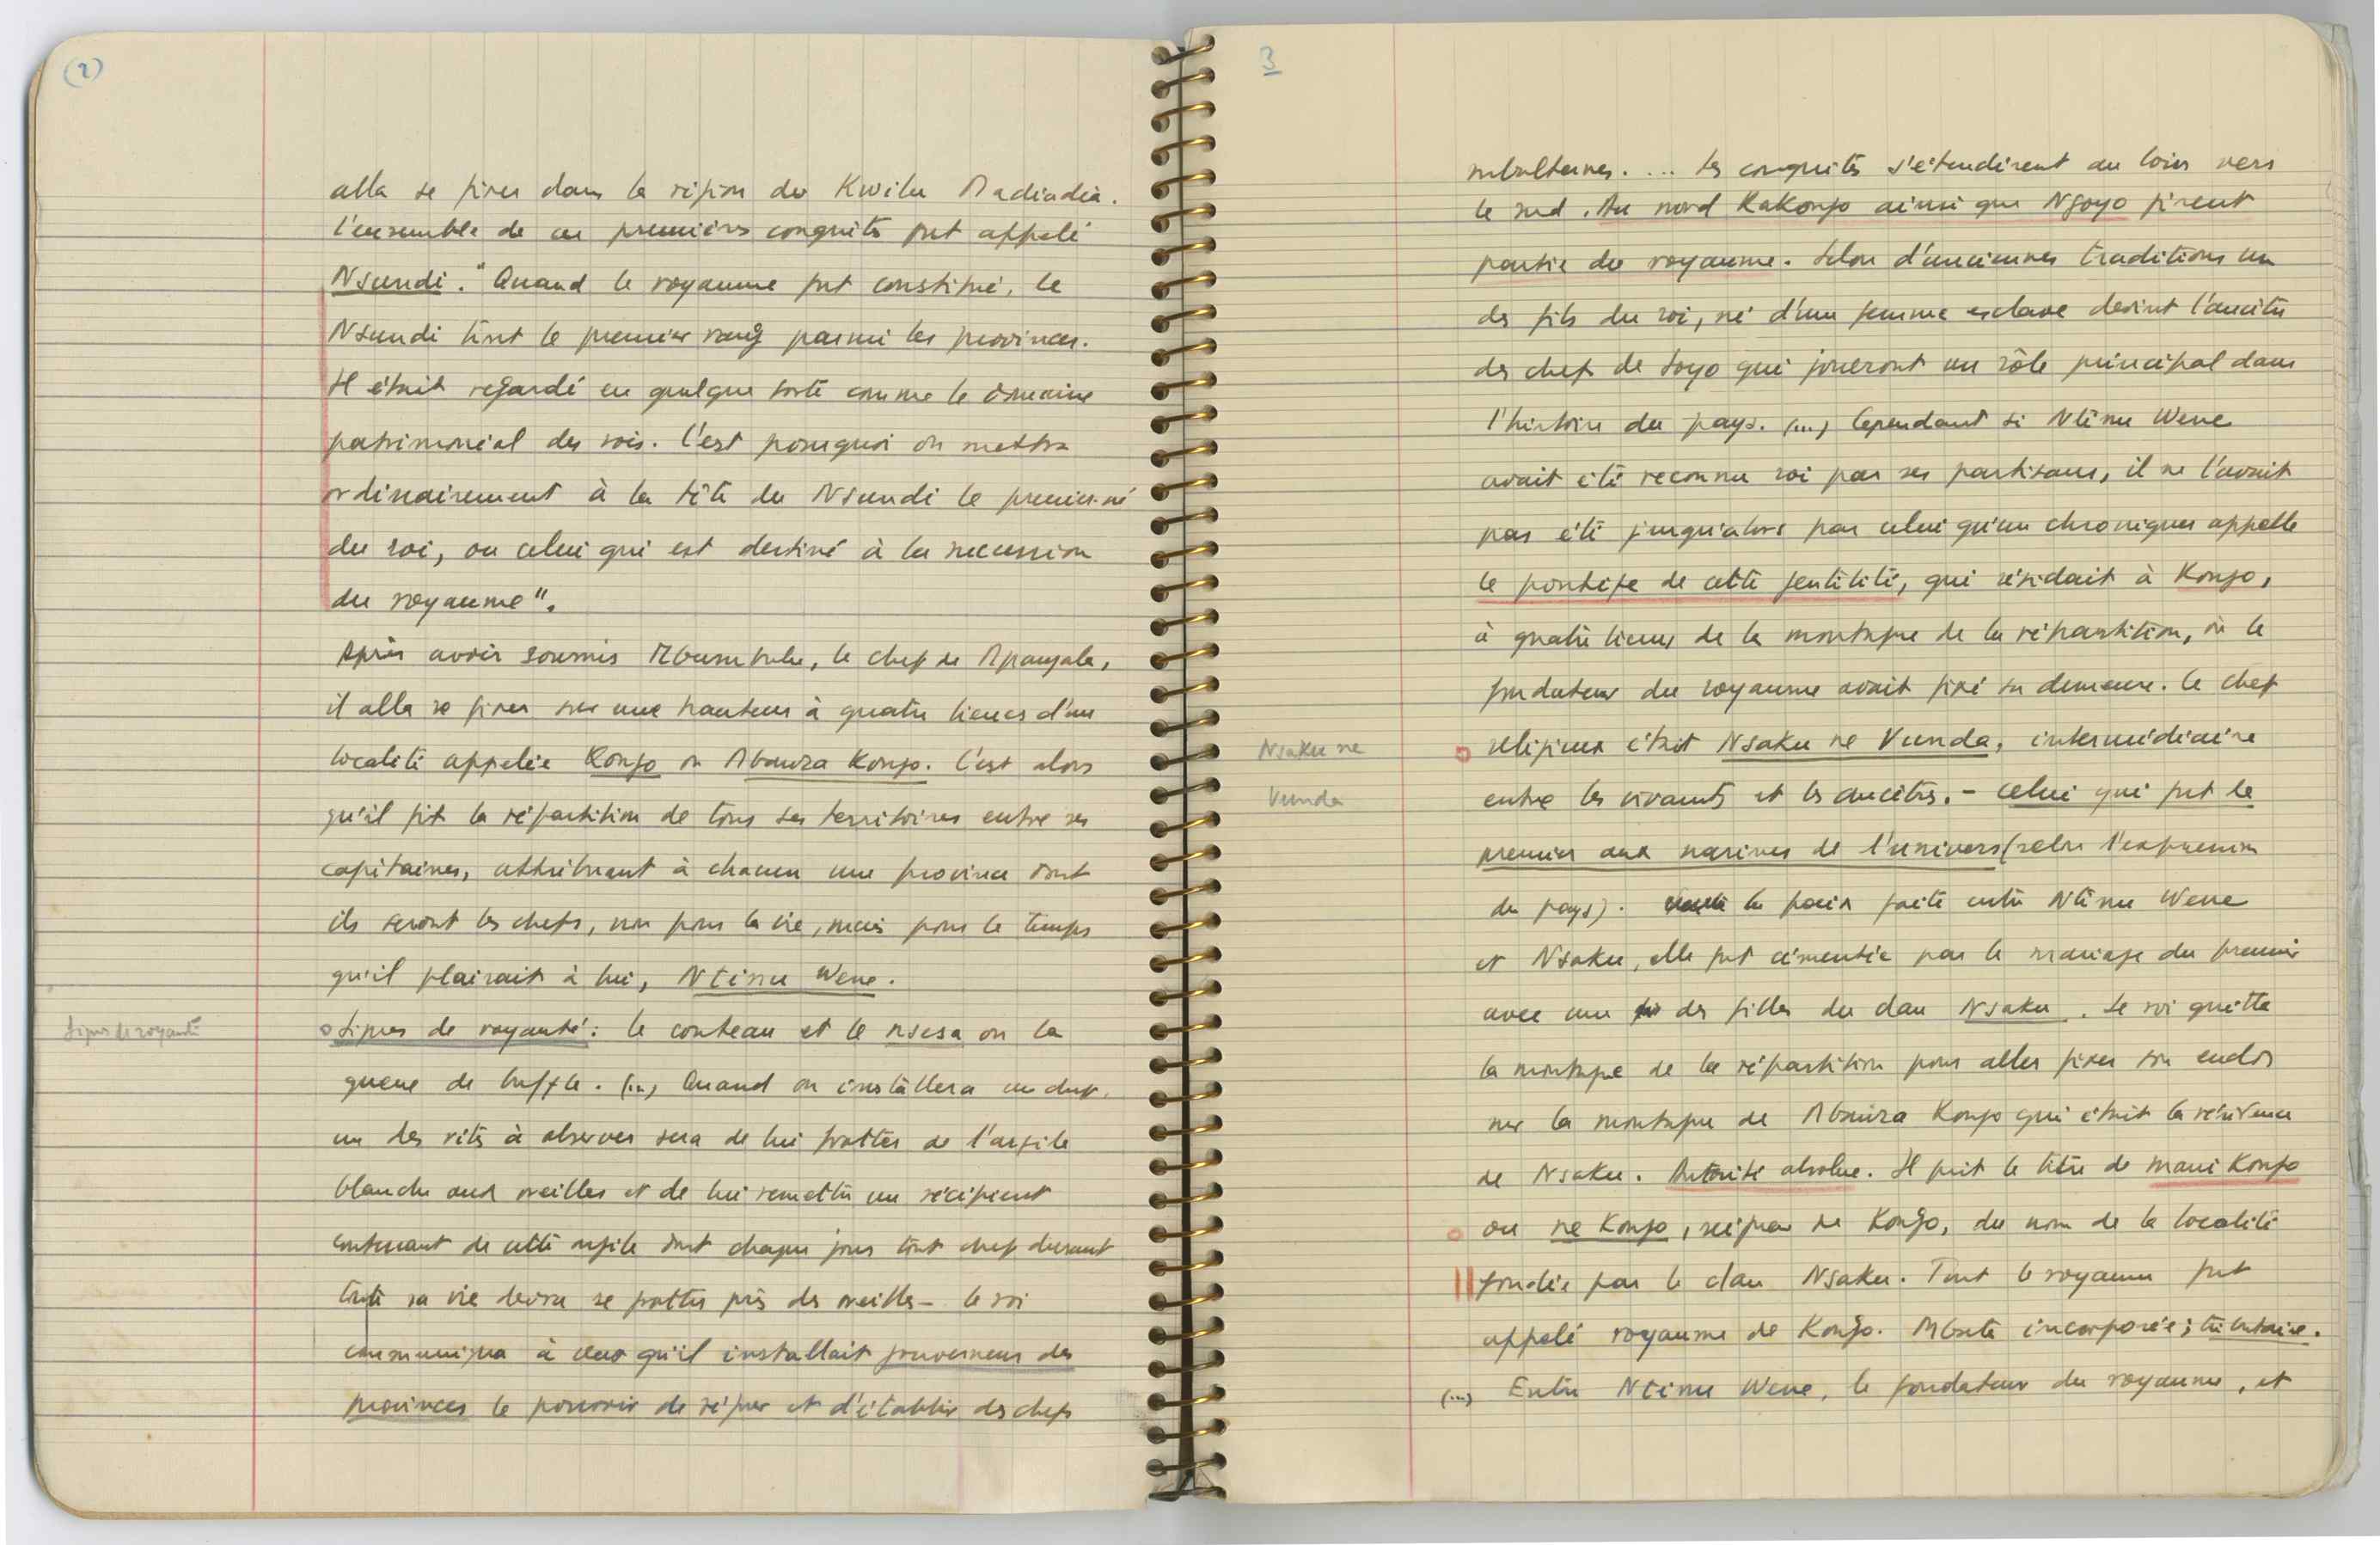 (2)
alla se fixer dans la région du Kwilu Madiadia.
l'ensemble de ces premières conquêtes fut appelé
Nsundi." Quand le royaume fut constitué, le
Nsundi tint le premier rang parmi les provinces.
Il était regardé en quelque sorte comme le domaine
patrimonial des rois. C'est pourquoi on mettra
ordinairement à la tête du Nsundi le premier-né
du roi, ou celui qui est destiné à la succession
du royaume".
Après avoir soumis le chef de Mpangala,
il alla se fixer sur une hauteur à quatre lieues d'une
localité appelée Kongo ou Mbanza Kongo. C'est alors
qu'il fit la répartition de tous ses territoires entre ses
capitaines, attribuant à chacun une province dont
ils seront les chefs, non pour la vie, mais pour le temps
qu'il plairait à lui, Ntinu Wene.
Signes de royauté
Signes de royauté : le couteau et le nsesa ou la
queue de buffle. (...) Quand on installera un chef,
un des rites à observer sera de lui frotter de l'argile
blanche aux oreilles et de lui remettre un récipient
contenant de cette argile dont chaque jour tout chef durant
toute sa vie devra se frotter près des oreilles – le roi
communiqua à ceux qu'il installait gouverneurs des
provinces le pouvoir de régner et d'établir des chefs
3
subalternes. ... Les conquêtes s'étendirent au loin vers
le sud. Au nord Kakongo ainsi que Ngoyo firent
partie du royaume. Selon d'anciennes traditions un
des fils du roi, né d'une femme esclave devint l'ancêtre
des chefs de Soyo qui joueront un rôle principal dans
l'histoire du pays. (...) Cependant si Ntinu Wene
avait été reconnu roi par ses partisans, il ne l'avait
pas été jusqu'alors par celui qu'un chroniqueur appelle
le pontife de cette gentilité, qui résidait à Kongo,
à quatre lieues de la montagne de la répartition, où le
fondateur du royaume avait fixé sa demeure. Le chef
Nsaku ne
Vunda
religieux était Nsaku ne Vunda, intermédiaire
entre les vivants et les ancêtres. – celui qui fut le
premier aux narines de l'univers (selon l'expression
du pays). la paix faite entre Ntinu Wene
et Nsaku, elle fut cimentée par le mariage du premier
avec une des filles du clan Nsaku. Le roi quitte
la montagne de la répartition pour aller fixer son enclos
sur la montagne de Mbanza Kongo qui était la résidence
de Nsaku. Autorité absolue. Il prit le titre de mani Kongo
ou ne Kongo, seigneur de Kongo, du nom de la localité
fondée par le clan Nsaku. Tout le royaume fut
appelé royaume de Kongo. Mbata incorporée ; tributaire.
(...) Entre Ntinu Wene, le fondateur du royaume, et